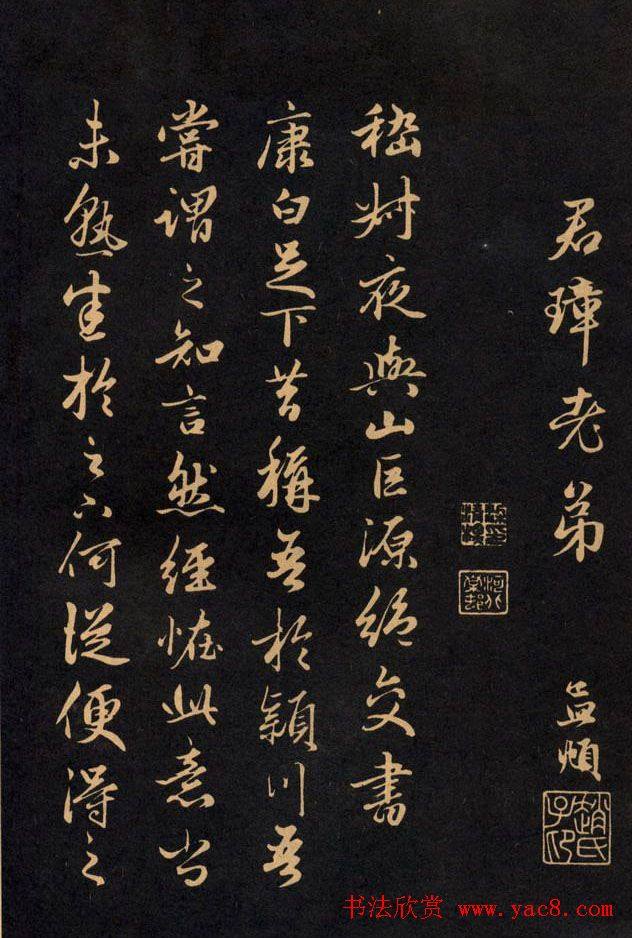 君璋老弟
孟頫
趙氏子昂
嵇叔夜與山巨源絕交書
康白足下昔稱吾於穎川吾
嘗謂之知言然經怪此意尚
未熟悉於足下何從便得之
书法欣赏 www.yac8.com